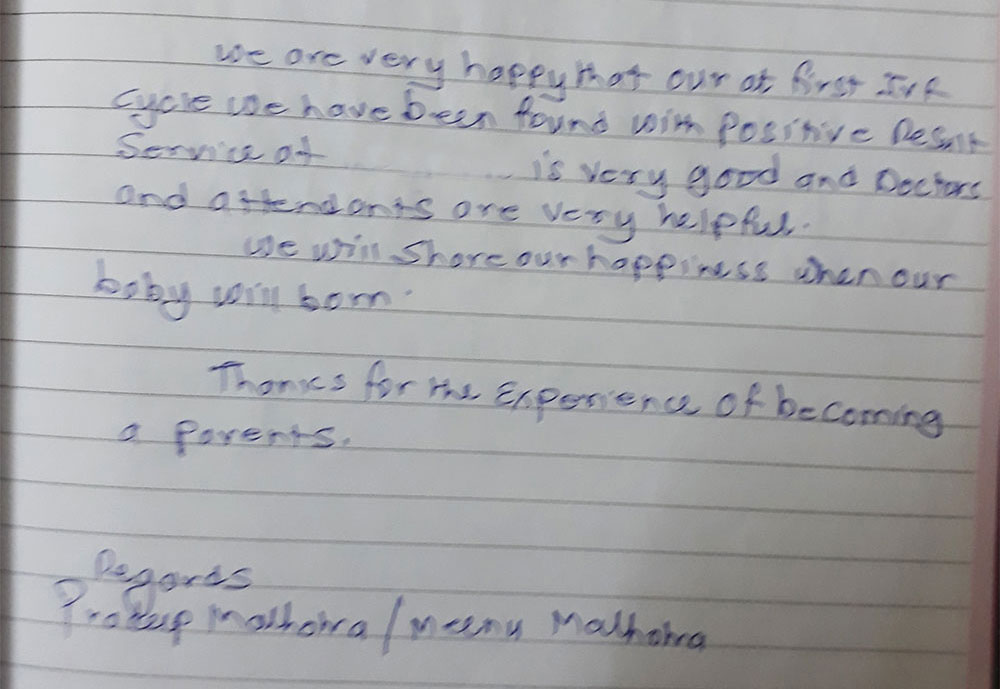 We are very happy that our at first IVF
cycle we have been found with Positive Result
Service at is very good and Doctors
and attendants are very helpful.
We will Share our happiness when our
baby will born.
Thanks for the Experience of becoming
a parents.
Regards
Malhotra / Meenu Malhotra